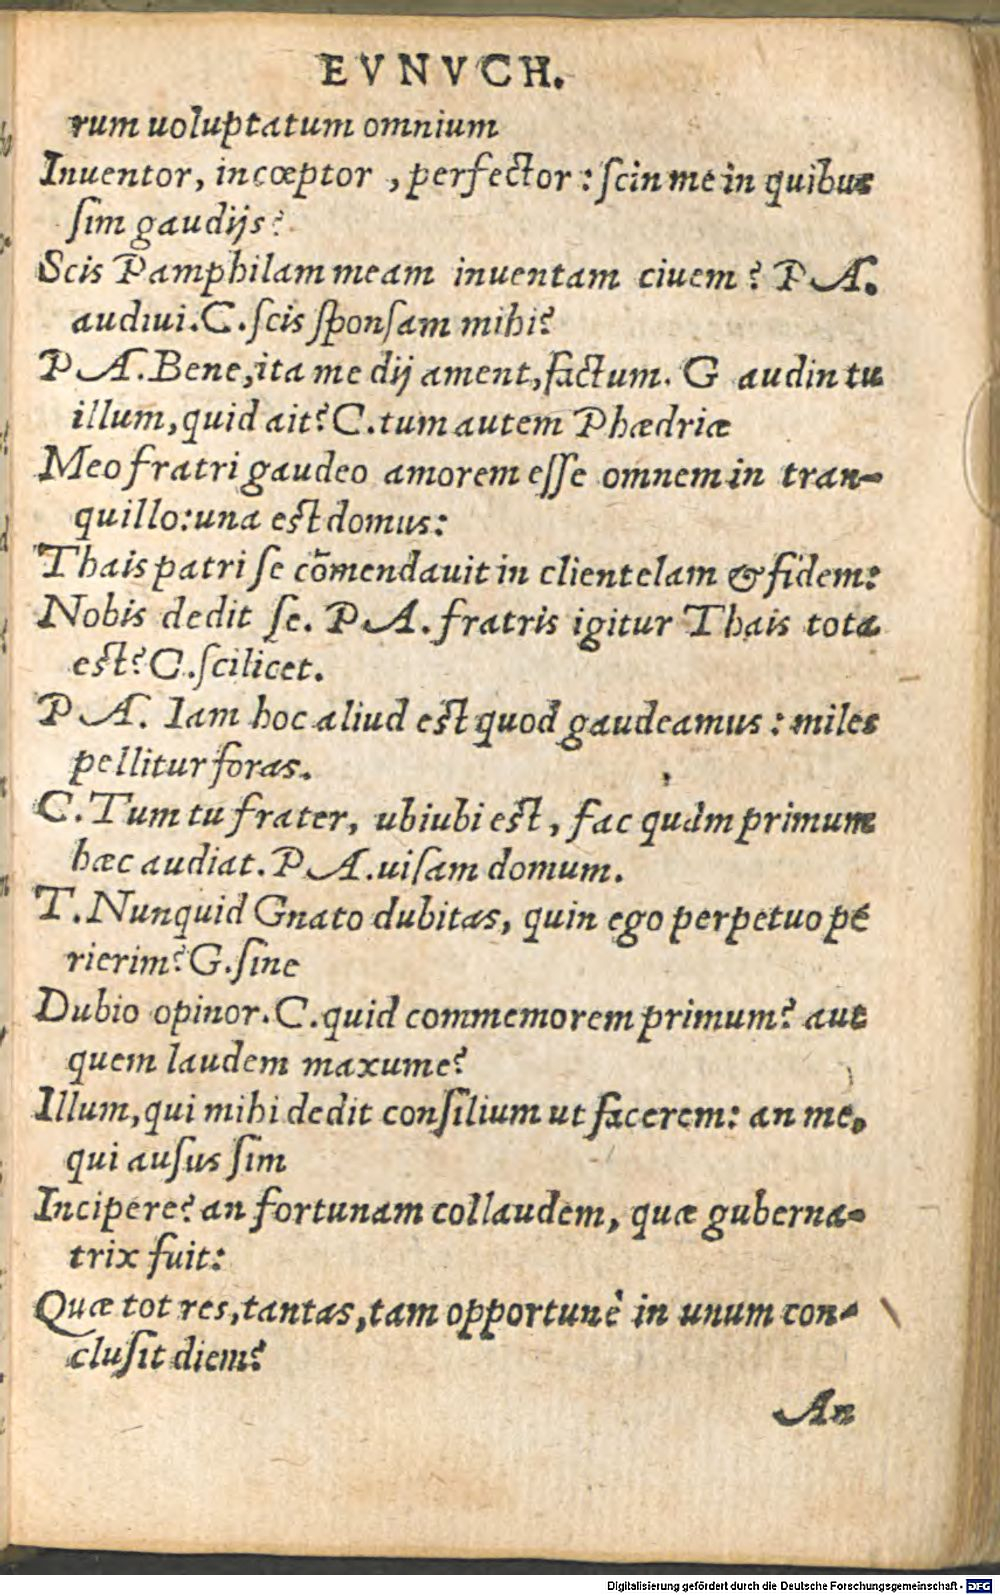 EVNVCH.
rum uoluptatum omnium
Inuentor, incœptor , perfector : ſcin me in quibus
ſim gaudijs?
Scis Pamphilam meam inuentam ciuem? PA.
audiui. C. ſcis ſponſam mihi?
PA. Bene, ita me dij ament, factum. G audin tu
illum, quid ait? C. tum autem Phædriæ
Meo fratri gaudeo amorem eſſe omnem in tran-
quillo: una est domus:
Thais patri ſe cõmendauit in clientelam & fidem:
Nobis dedit ſe. PA. fratris igitur Thais tota
est? C. ſcilicet.
PA. Iam hoc aliud est quod gaudeamus : miles
pellitur foras.
C. Tum tu frater, ubiubi est, fac quàm primum
hæc audiat. PA. uiſam domum.
T. Nunquid Gnato dubitas, quin ego perpetuo pe
rierim? G. ſine
Dubio opinor. C. quid commemorem primum? aut
quem laudem maxume?
Illum, qui mihi dedit conſilium ut facerem: an me,
qui auſus ſim
Incipere? an fortunam collaudem, quæ guberna-
trix fuit:
Quæ tot res, tantas, tam opportunè in unum con-
cluſit diem?
An
Digitalisierung gefördert durch die Deutsche Forschungsgemeinschaft - DFG